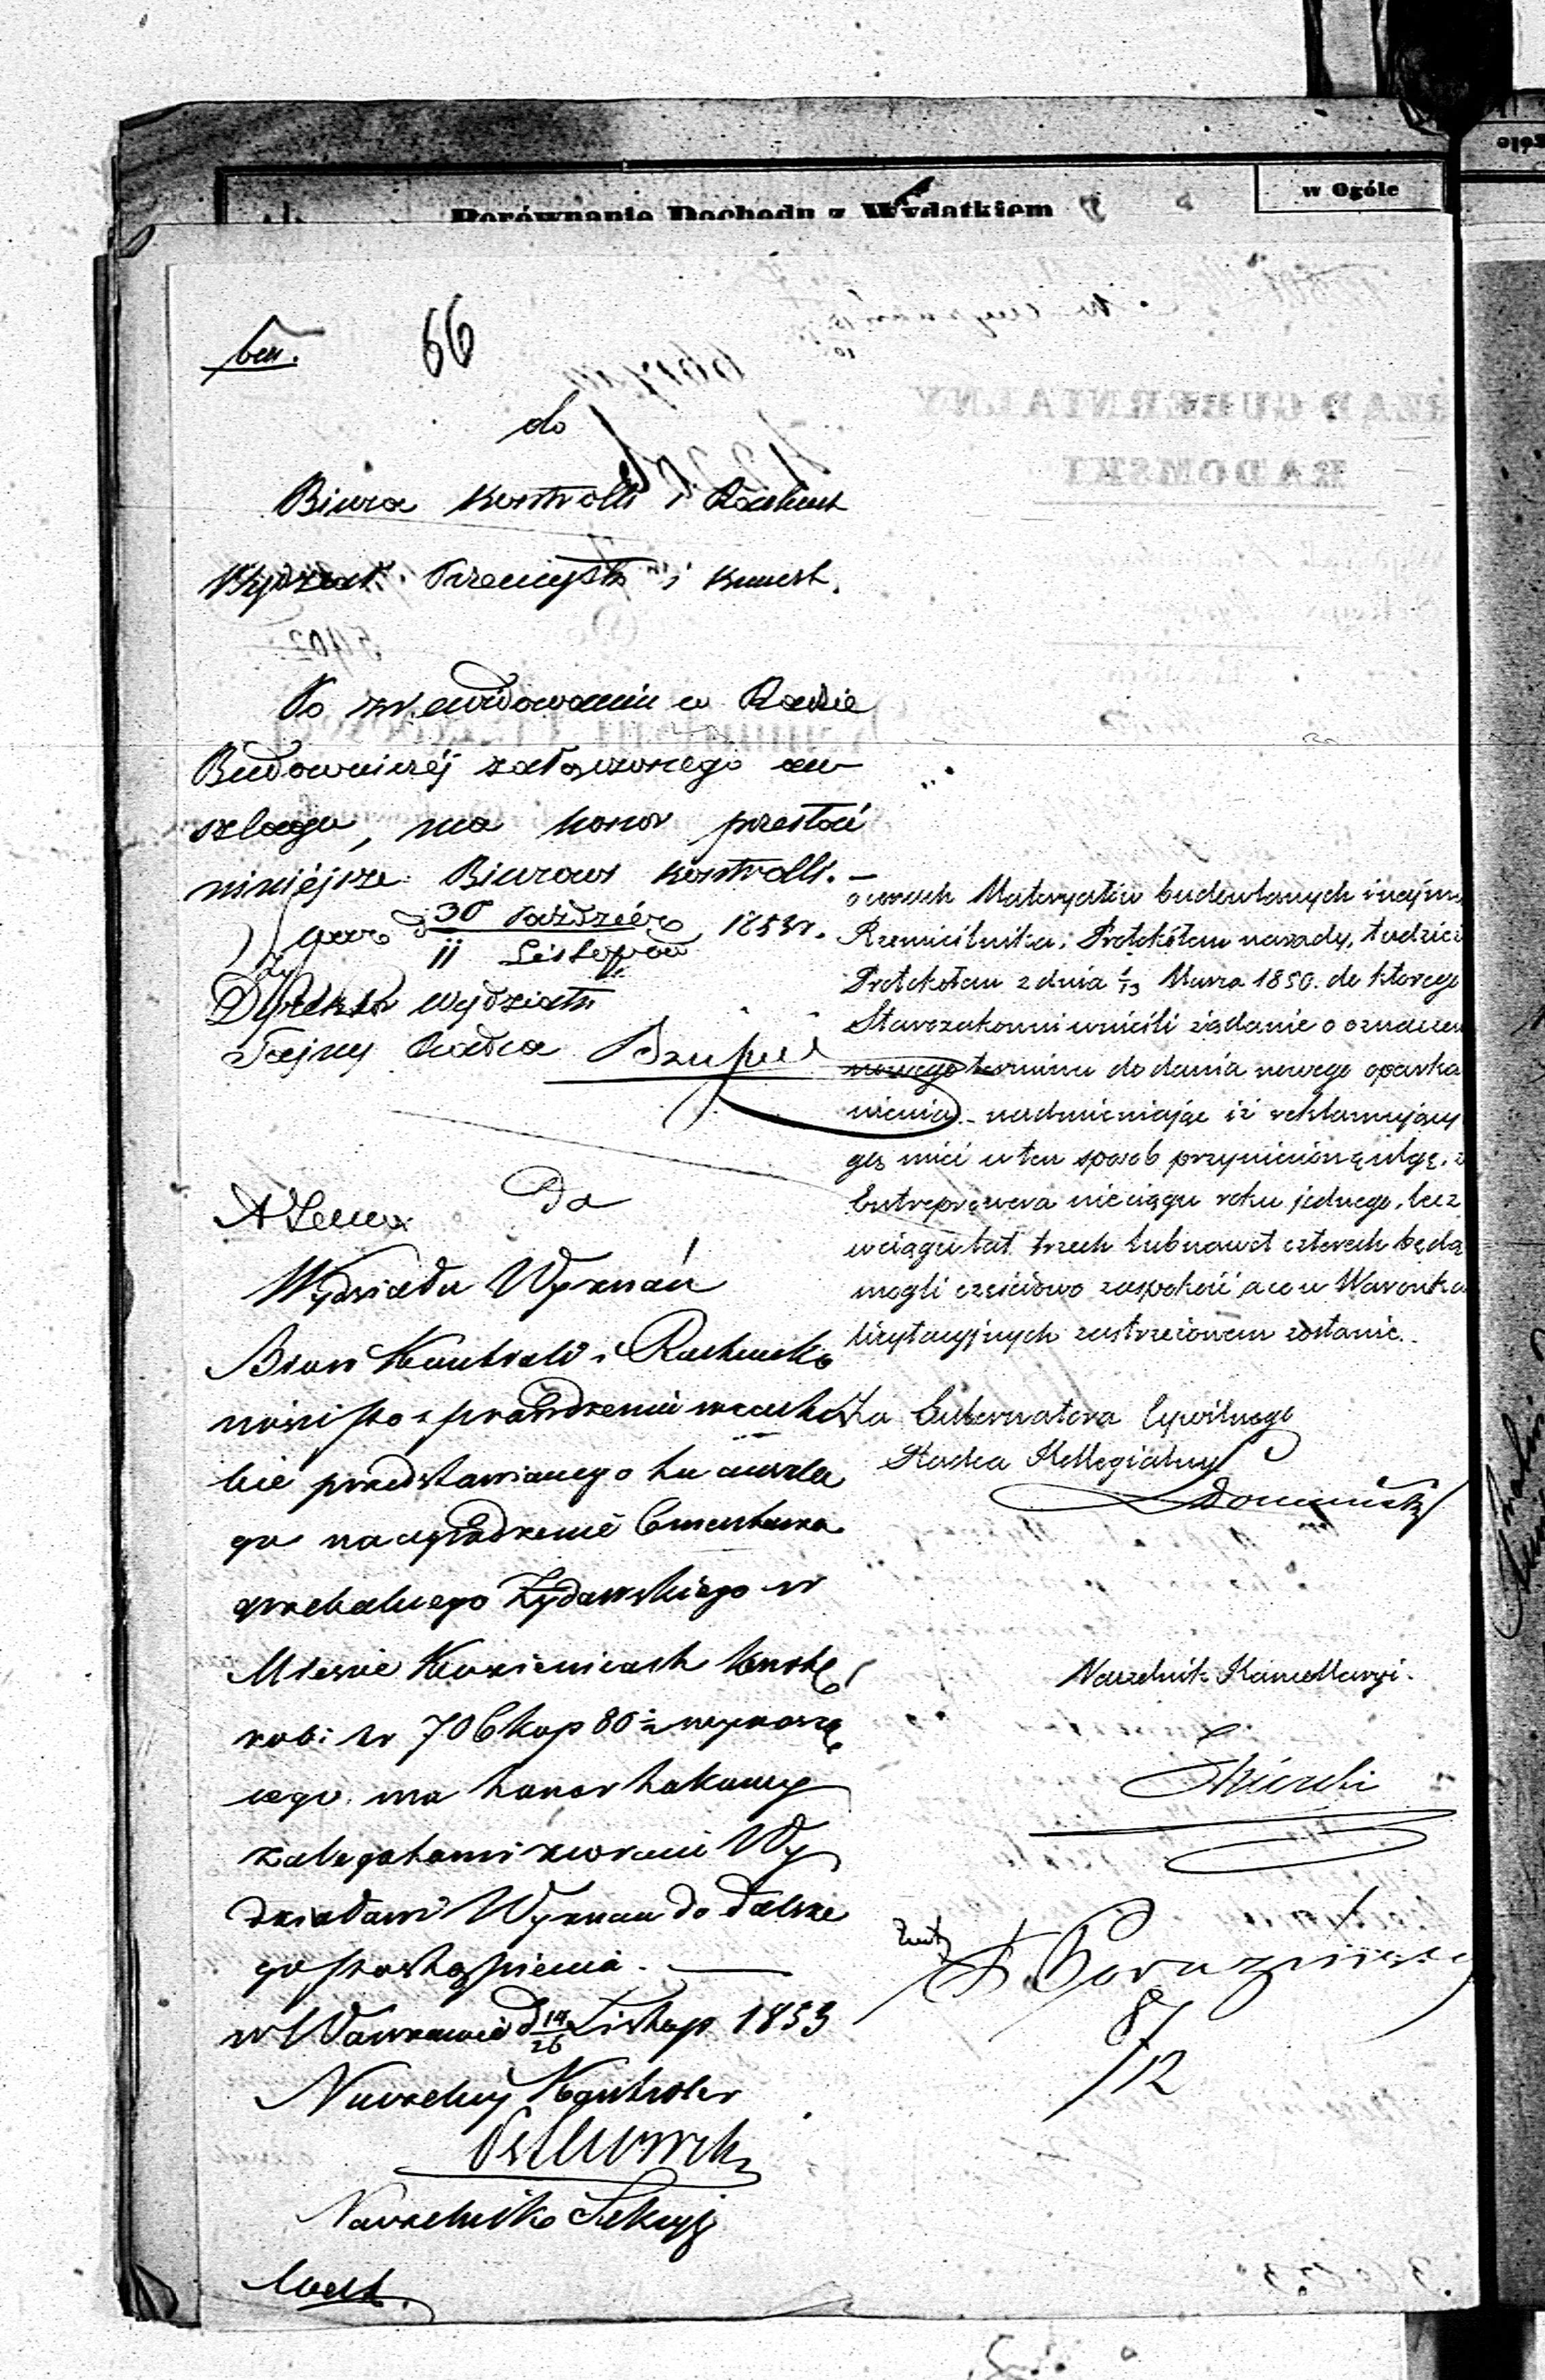 Porównanie Dochodu z Wydatkiem
w Ogóle
66
do
Biura Kontrolli i Rachun
Wydział Przemysłu i Kunszt.
Po zrewidowaniu w Radzie
Budowniczéj załączonego an-
szlagu, ma honor przesłać
niniéjsze Biurowi Kontrolli.—
d 30 Paździer 1853 r.
11 Listopad
Dyrektor Wydziału
Tajny Radca
Do
Wydziału Wyznań
Biuro Kontroli i Rachunko
wości po sprawdzeniu rachun
kie przedstawianego tu anszla
gu na ogrodzenie Cmentarza
grzebalnego Żydowskiego w
Mieście Kozienicach
rubi sr 706 kop 80½ wynoszą
cego. ma honor takowy
z alegatami zwrócić Wy
działowi Wyznań do dalsze
go postąpienia.—
w Warszawie d 14/26 Listop 1853
Naczelny Kontroler
Naczelnik Sekcyi
o cenach Materyałów budowlanych i najmu
Rzemieślnika, Protokółem narady, tudzież
Protokołem z dnia 1/13 Marca 1850. do którego
Starozakonni wnieśli żądanie o oznaczen
nowego terminu do dania nowego oparka
nienia.- nadmieniając iż reklamujący
gą mieć w ten sposób przyniesioną ulgę, i
Entreprenera nie ciągu roku jednego, lecz
w ciągu lat trzech lub nawet czterech będą
mogli częściowo zaspokoić a co w Warunka
licytacyjnych zastrzeżonem zostanie.
Za Gubernatora Cywilnego
Radca Kollegialny
Naczelnik Kancellaryi.
8/12